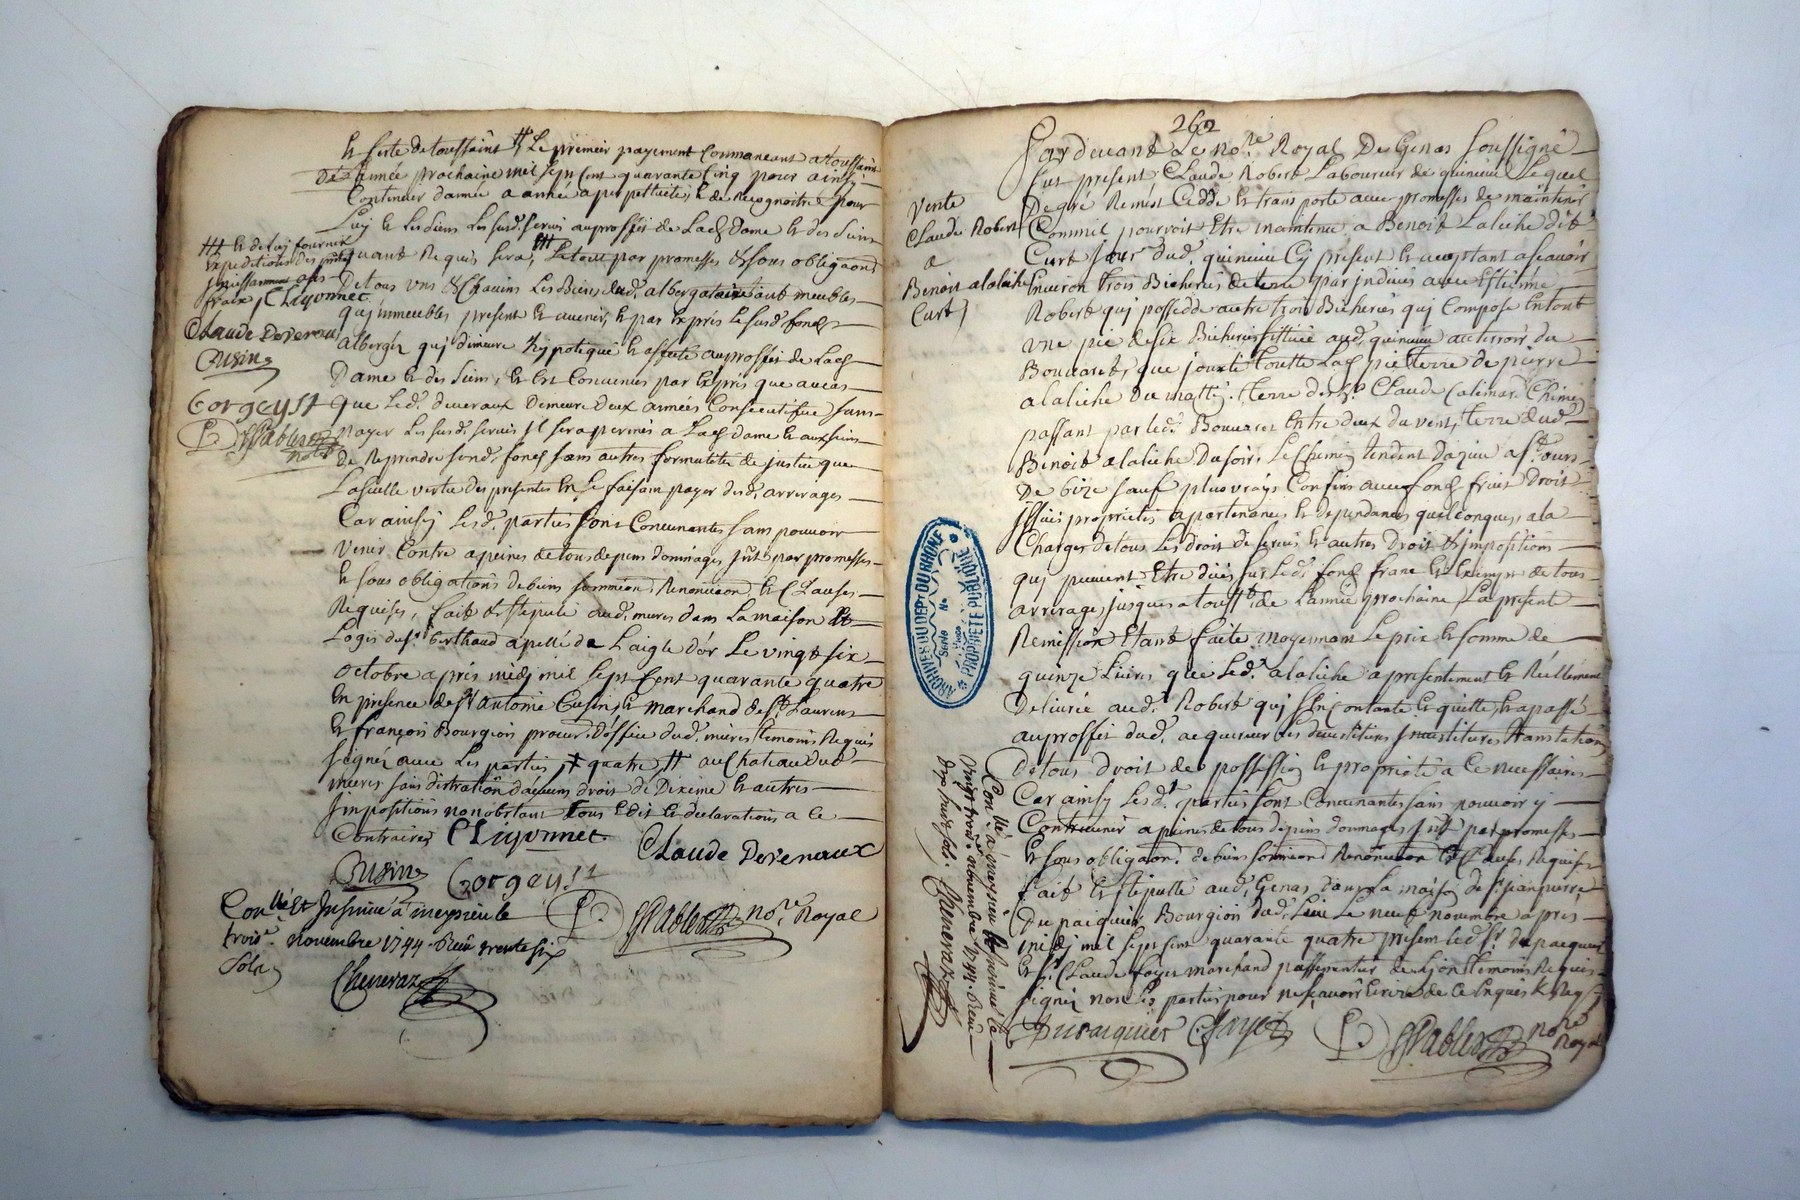 et feste de toussaint # Le premier payement Commancant a toussaint
De année prochaine mil sept cent quarante Cinq pour ainsy
Continuer dannée a année a perpettuité, et de Recognoitre pour
Luy et Les siens Les susd. servis au proffit de Lad. Dame et des siens
quant Requis sera, ## Le tout par promesses et sous obligaons
De tous uns Chacuns Les Biens dud. albergataire tant meubles
quj immeubles present et avenir, et par Exprés Le susd. fonds
albergé quj dimeure hypotequé et affecté au proffit de Lad.
Dame et des siens, et Est Convenus par Exprés que au cas
que Led. deveraux Demeure Deux années Consecutifue sans
payer Les susd. servis jl sera permis a Lad. dame et aux siens
De Reprendre sond. fonds sans autres formalités de justice que
La seulle vertu des presentes En se faisant payer desd. arrerages
Car ainsy Lesd. parties sont Convenantes sans pouvoir
venir Contre a peines de tous depens dommages par promesses
et sous obligations de biens Renonciaon et Clauses
Requises, fait et stipulé aud. mures dans La maison et
Logis du sr. berthaud apellé de L'aigle d'ór Le vingt six
octobre aprés midj mil sept Cent quarante quatre
En presence de sr. antoine Cusin, marchand de st. Laurens
et françois Bourgeois procur. d'óffice dud. mures temoins Requis
signéz avec Les parties # quatre # au Chateau dud.
mures sans distration d'aucuns droit de Dixieme et autres
jmpositions nonobstant tous Edit et declarations a ce
Contraires CLuyonnet
Claude Deveraux
Cusin
Gorgeyst
P. Pablo nore. Royal
Conlle. Et Insinué a meyzieu le
trois. novembre 1744. Receu trente six
Sols
Cheneraz
### et de Luy fournir
expeditions des pntes.
a ses
fraix CLuyonnet
Claude Deveraux
Cusin
Gorgeyst
P. Pablo
notre
262
Pardevant Le nore. Royal De Genas soussigné
fut present Claude Robert Laboureur de quinuieu Lequel
De gré Remést Cedde et transporte avec promesses de maintenir
Commil pourvoit Etre maintenu a Benoit Laliche dit
Curt dud. quinuieu Cy present et acceptant ascavoir
Environ trois Bicherées de terre par jndivis avec Estienne
Robert quj possedde autre trois Bicherées quj Compose En tout
une pié de six Bicherées sittuée aud. quinuieu au terroir du
Bouvaret, que jouxte toutte Lad. pié terre de pierre
alaliche du matin. terre de sr. Claude Chemin
passant par led. Bouvaret Entre deux du vent, terre dud.
Benoit alaliche du soir, Le Chemin tendent
De bize sauf plus vrays Confins avec fonds fruit Droit
jssües proprietés apartenances et dependances quelconques, a la
Charges de tous Les droit de servis et autres Droit et jmpositions
quj peuvent Etre düés sur Led. fonds franc et Exempt de tous
arrerages jusques a toussts. de L'année prochaine La presente
Remission Etant faite moyennant Le prix et somme de
quinze Livres que Led. alaliche a presentement et Réellement
delivrée aud. Robert quj s'en contante et quitte, et a passé
au proffit dud. acquereur Les devestitures jnvestitures translations
De tous droit de possession et proprieté a ce necessaires
Car ainsy Lesd. parties sont Convenantes sans pouvoir y
Contrevenir a peines de tous depens dommages par promesses
Et sous obligaon. de biens Renonciaon et Clauses Requises
fait et stipullé aud. Genas Dans La maison de sr. jean pierre
Dupaiquier Bourgeois dud. Lieu Le neuf novembre aprés
midj mil sept cent quarante quatre présent led. sr. dupaquier
Et sr. Claude foyer marchand passementier de Lyon temoins Requis
signéz non Les parties pour ne scavoir Ecrire de ce Enquis et Req
Dupaiquier CFoyer P. Pablo nore Royal
Vente
Claude Robert
a
Benoit alaliche
Curt
ARCHIVES DU DEPT DU RHONE
PROPRIETE PUBLIQUE
Conlle. a meyzieu et jnsinué La
vingt trois novembre 1744. Receu
dix huit sols. Cheneraz